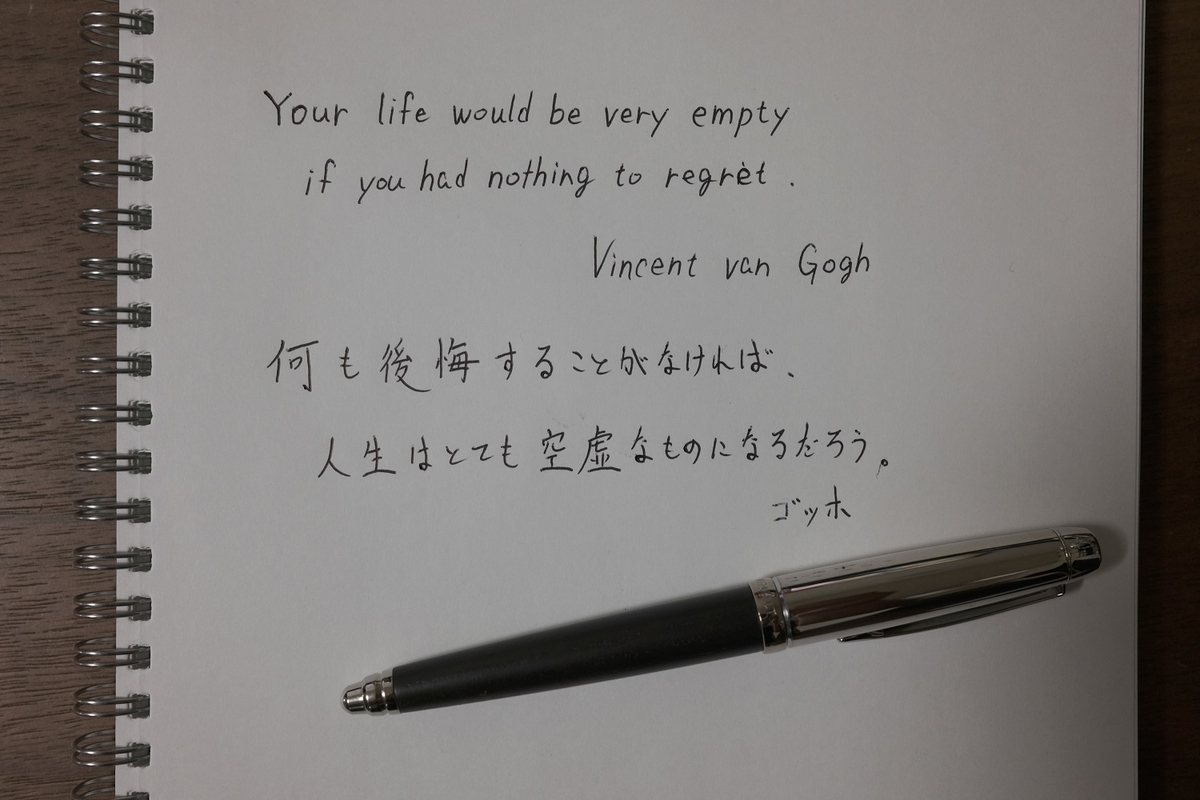 Your life would be very empty
if you had nothing to regret .
Vincent van Gogh
何も後悔することがなければ、
人生はとても空虚なものになるだろう。
ゴッホ